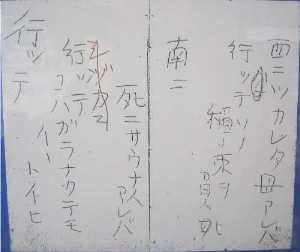 西ニツカレタ母アレバ
行ッテソノ
稲ノ束ヲ負ヒ
南ニ
死ニサウナ人アレバ
行ッテ
コハガラナクテモ
イヽ
トイヒ
行ッテ